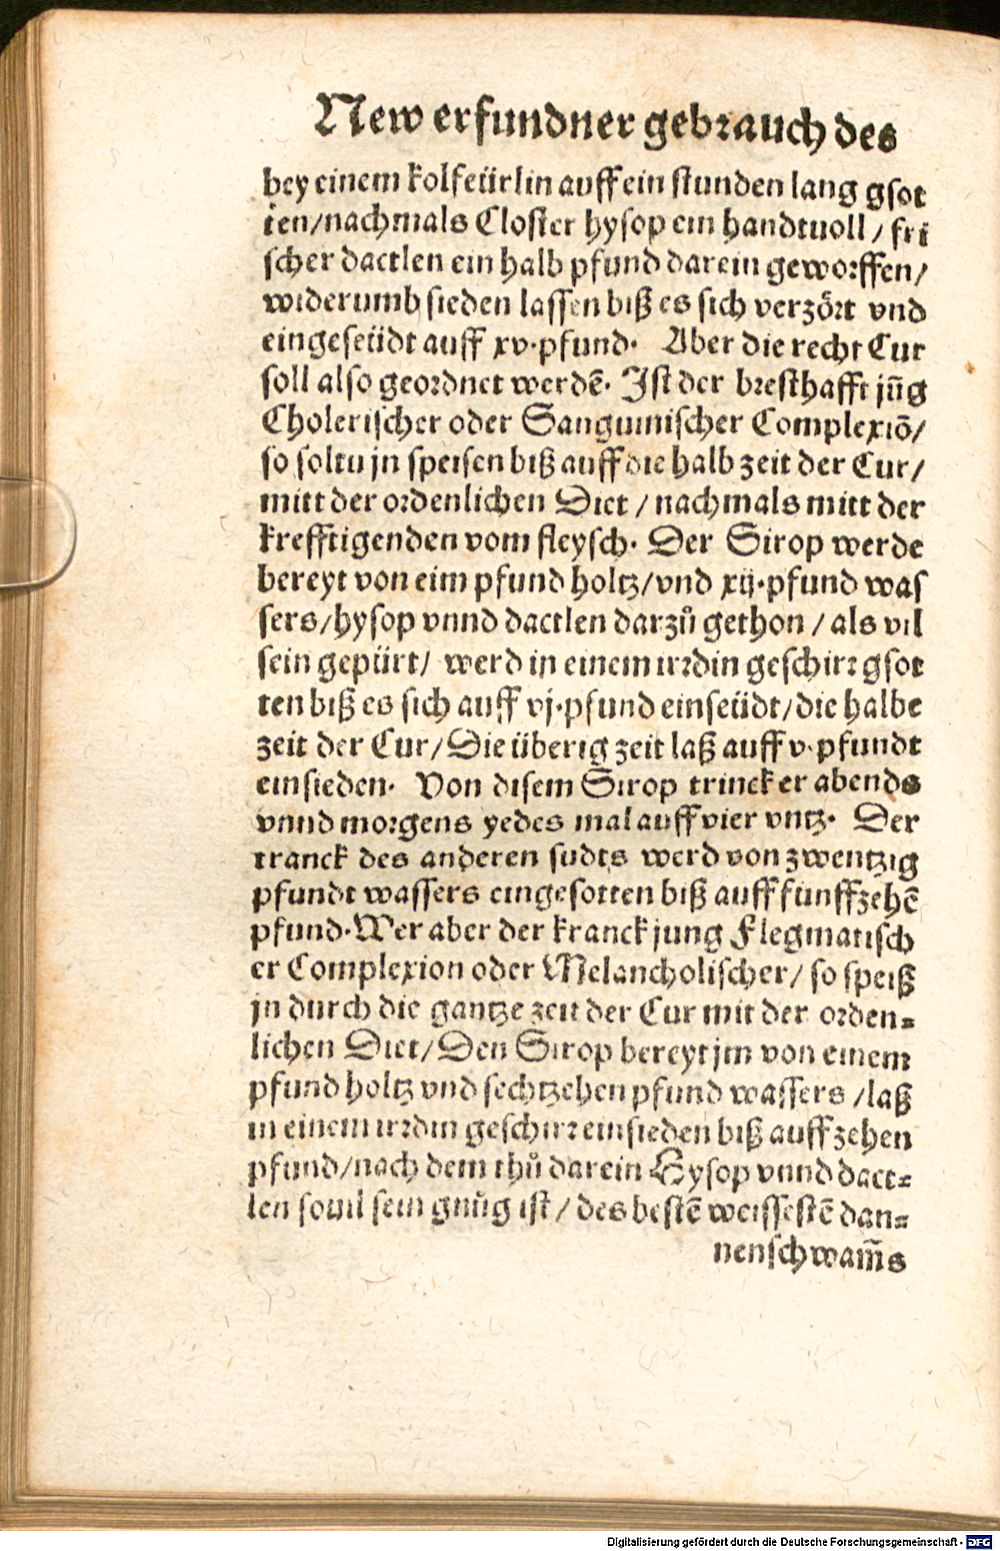 New erfundner gebrauch des
bey einem kolfeürlin auff ein stunden lang gsot
ten/nachmals Closter hysop ein handtuoll / fri
scher dactlen ein halb pfund darein geworffen/
widerumb sieden lassen biß es sich verzört vnd
eingeseüdt auff xv.pfund. Aber die recht Cur
soll also geordnet werdē. Ist der bresthafft jūg
Cholerischer oder Sanguinischer Complexiō/
so soltu jn speisen biß auff die halb zeit der Cur/
mitt der ordenlichen Diet / nachmals mitt der
krefftigenden vom fleysch. Der Sirop werde
bereyt von eim pfund holtz/vnd xij.pfund was
sers/hysop vnnd dactlen darzů gethon / als vil
sein gepürt/ werd in einem irrdin geschirr gsot
ten biß es sich auff vj.pfund einseüdt/die halbe
zeit der Cur/Die überig zeit laß auff v.pfundt
einsieden. Von disem Sirop trinck er abends
vnnd morgens yedes mal auff vier vntz. Der
tranck des anderen sudts werd von zwentzig
pfundt wassers eingesotten biß auff fünffzehē
pfund.Wer aber der kranck jung Flegmatisch
er Complexion oder Melancholischer/ so speiß
jn durch die gantze zeit der Cur mit der orden-
lichen Diet/Den Sirop bereyt jm von einem
pfund holtz vnd sechtzehen pfund wassers /laß
in einem irrdin geschirr einsieden biß auff zehen
pfund/nach dem thů darein Hysop vnnd dact-
len souil sein gnůg ist / des bestē weissestē dan-
nenschwam̄s
Digitalisierung gefördert durch die Deutsche Forschungsgemeinschaft - DFG